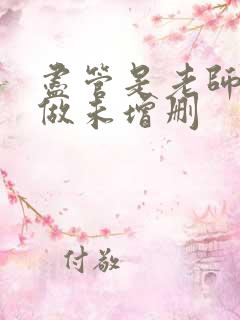 盡管是老師
做未增刪
付敬